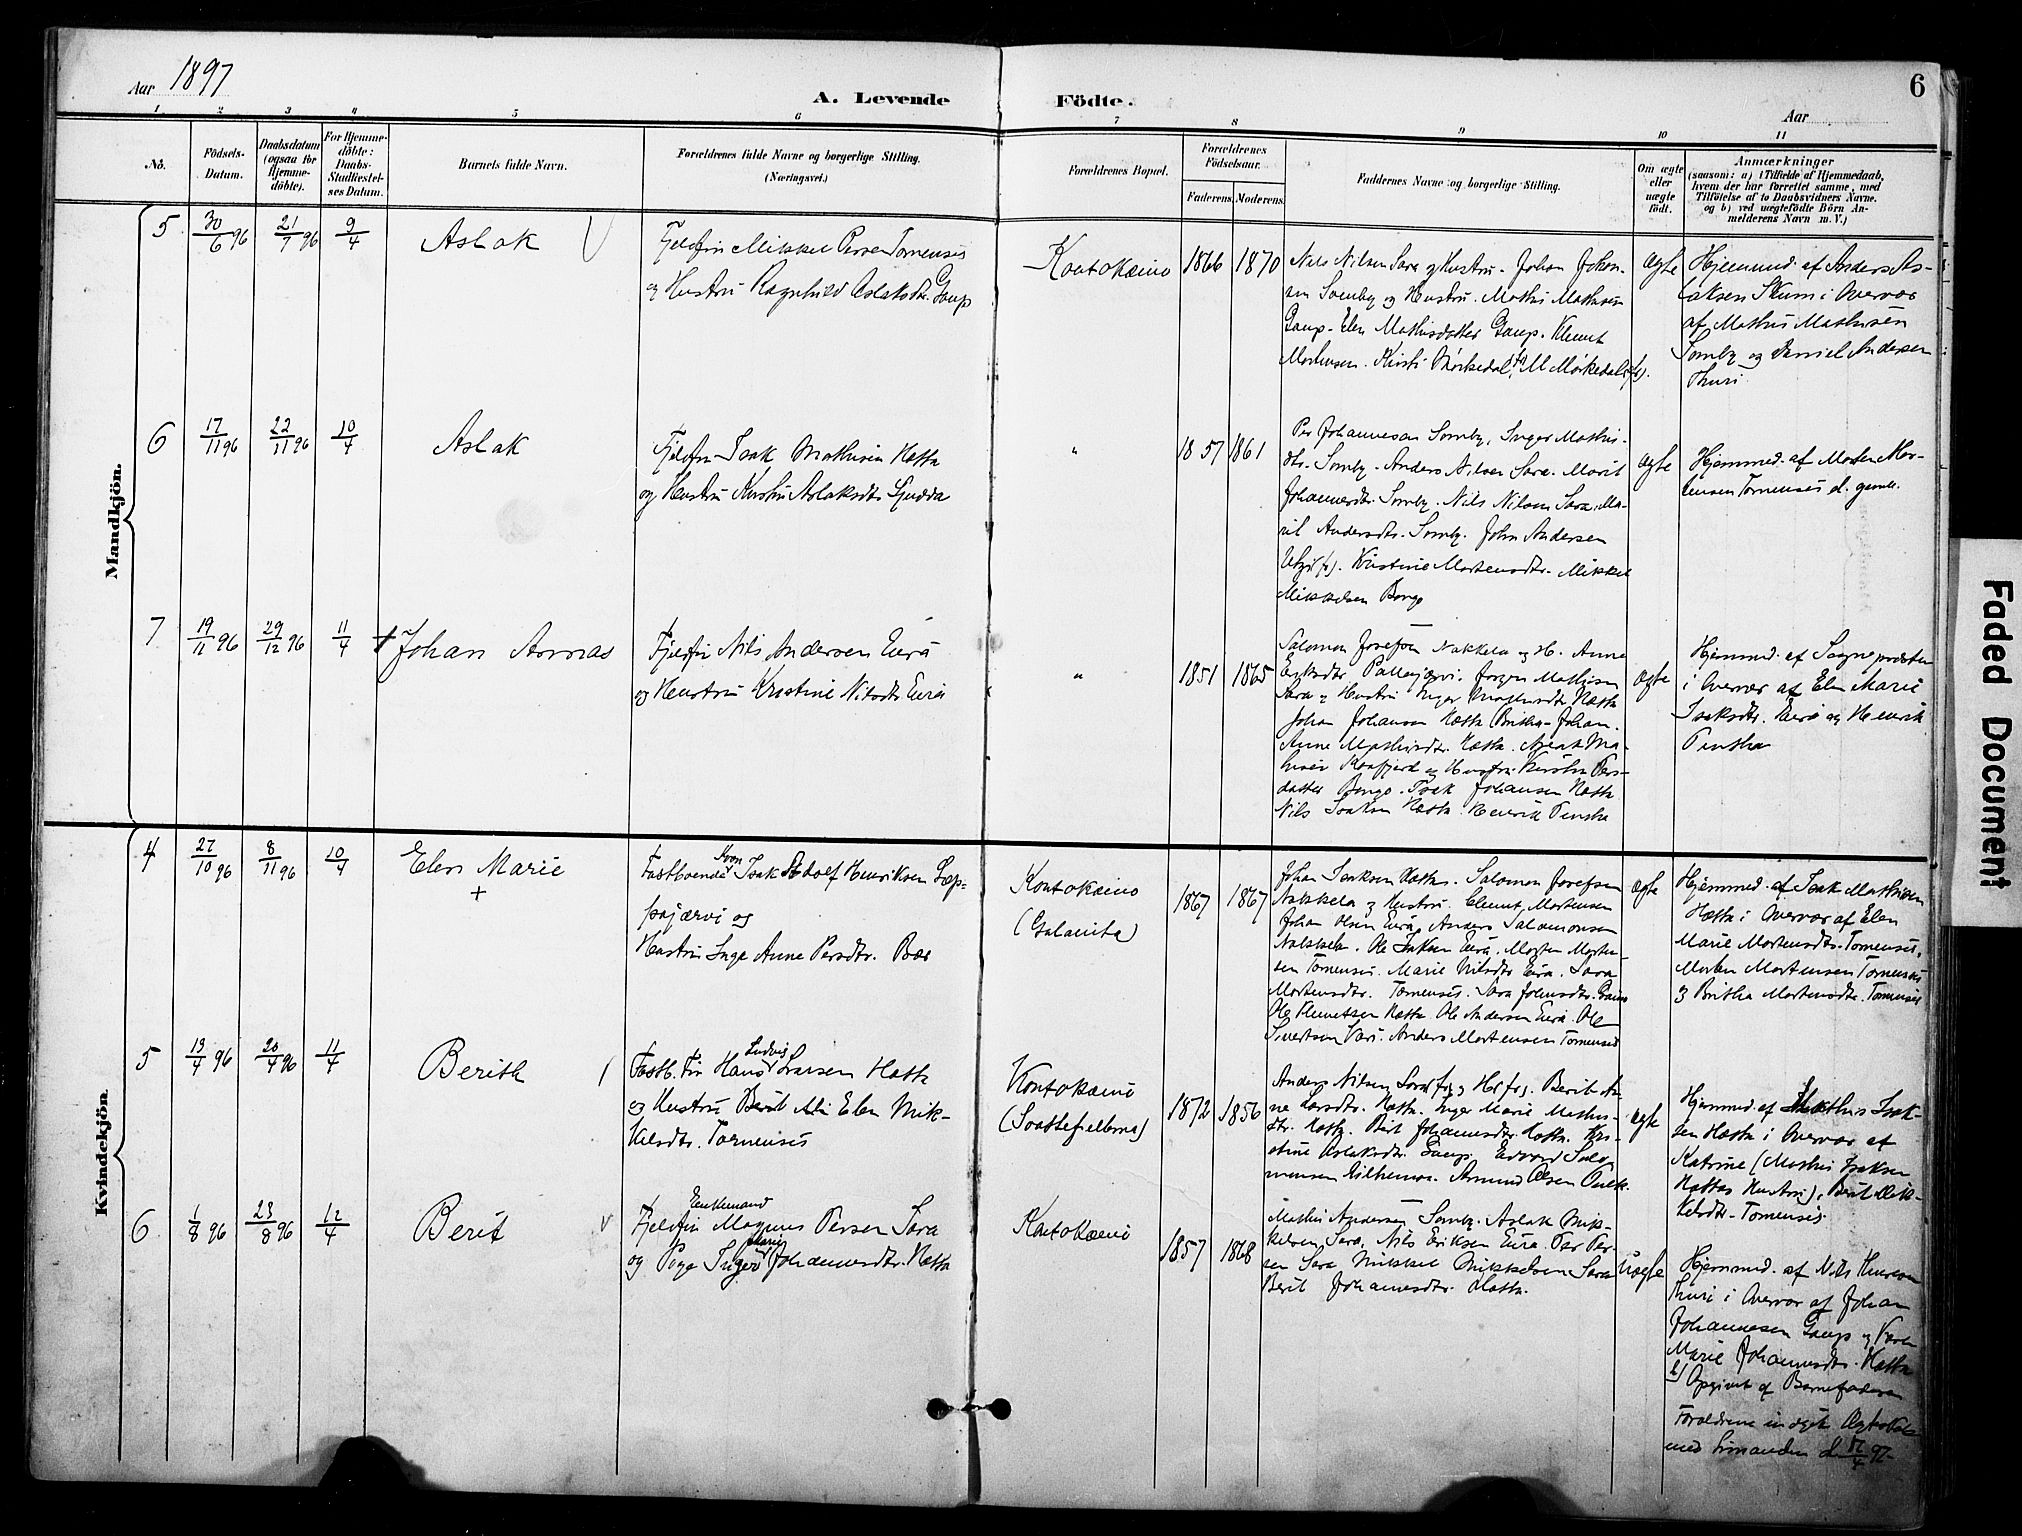 Aar 1897
A. Levende Födte.
6
Aar
1 2 3 4 5 6 7 8 9 10 11
No.
Födsels-
Datum.
Daabsdatum
(ogsaa for
Hjemme-
döbte).
For Hjemme-
döbte:
Daabs-
Stadfæstel-
ses Datum.
Barnets fulde Navn.
Forældrenes fulde Navne og borgerlige Stilling.
(Næringsvei.)
Forældrenes Bopæl.
Forældrenes
Födselsaar.
Faderens. Moderens.
Faddernes Navne og borgerlige Stilling.
Om ægte
eller
uægte
födt.
Anmærkninger
(saasom: a) i Tilfælde af Hjemmedaab,
hvem der har forrettet samme, med
Tilföielse af to Daabsvidners Navne.
og b) ved uægtefödte Börn An-
melderens Navn m. V.)
Mandkjön.
5 30/6 96 21/7 96 9/4 Aslak
Fjeldfin Mikkel Persen Tornensis
og Hustru Ragnhild Aslaksdtr. Gaup
Koutokæino 1866 1870
Nils Nilsen Sara og Hustru. Johan Johan-
sen Somby og Hustru. Mathis Mathisen
Gaup. Elen Mathisdatter Gaup. Klemet
Mortensen. Kirsti Mörkedal, M Mörkedal (fr).
ægte
Hjemmed. af Anders As-
laksen Skum i Overvær
af Mathis Mathisen
Somby og Daniel Andersen
Thuri
6 17/11 96 22/11 96 10/4 Aslak
Fjeldfin Isak Mathisen Hætta
og Hustru Kirsti Aslaksdtr Sjudda
" 1857 1861
Per Johannesen Somby, Inger Mathis-
dtr. Somby. Anders Nilsen Sara. Marit
Johannesdtr Somby. Nils Nilsen Sara. Ma-
rit Andersdtr. Somby. John Andersen
Utsi (fr). Kirstine Mortensdtr. Mikkel
Mikkelsen Bongo
ægte
Hjemmed. af Morten Mor-
tensen Tornensis d. gamle.
7 19/11 96 29/12 96 11/4 Johan Annas
Fjeldfin Nils Andersen Eira
og Hustru Kristine Nilsdtr Eira
" 1851 1865
Salomon Josefsen Nakkela og H. Anne
Eriksdtr Pallojærvi. Jørgen Mathisen
Sara og Hustru Inger Magnusdtr Hætta
Johan Johansen Hætta Britha Johan.
Anne Mathisdtr. Hætta. Aslak Ma-
thisen Kaafjord og Hustru. Kirsten Pers-
datter Bongo. Isak Johansen Hætta
Nils Isaksen Hætta. Henrik Pentha
ægte
Hjemmed. af Sognepresten
i Overvær af Elen Marie
Isaksdtr. Eira og Henrik
Pentha
Kvindekjön.
4 27/10 96 8/11 96 10/4 Elen Marie
+
Fastboende Kvæn Isak Adolf Henriksen Læp-
pajærvi og
Hustru Inge Anne Persdtr. Bær
Koutokæino
(Galanita)
1867 1867
Johan Isaksen Hætta. Salomon Josefsen
Nakkela og Hustru. Clemet Mortensen
Johan Olsen Eira, Anders Salamonsen
Nakkela. Ole Isaksen Eira, Morten Morten-
sen Tornensis. Marie Nilsdtr Eira. Sara
Mortensdtr. Tornensis. Sara Johnsdtr. Gaino
Ole Klemetsen Hætta. Ole Andersen Eira. Ole
Sivertsen Vars. Anders Mortensen Tornensis
ægte
Hjemmed. af Isak Mathisen
Hætta i Overvær af Elen
Marie Mortensdtr. Tornensis,
Morten Mortensen Tornensis
og Britha Mortensdtr. Tornensis
5 13/4 96 20/4 96 11/4 Berith
Fastb. Fin Hans Ludvig Larsen Hætta
og Hustru Elen Mik-
kelsdtr. Tornensis
Koutokæino
(Soattefiellma)
1872 1856
Anders Nilsen Sara (fr) og H (fr). Berit An-
ne Larsdtr. Hætta. Inger Marie Mathis-
dtr. Hætta. Berit Johannesdtr. Hætta. Kri-
stine Aslaksdtr. Gaup. Edvard Salo-
monsen Amund Olsen
ægte
Hjemmed. af Mathis Isak-
sen Hætta i Overvær af
Katrine (Mathis Isaksen
Hættas Hustru), Berit Mik-
kelsdtr. Tornensis.
6 1/8 96 23/8 96 12/4 Berit
Fjeldfin Enkemand Magnus Persen Sara
og Pige Inger Marie Johannesdtr. Hætta
Koutokæino 1857 1868
Mathis Andersen Somby. Aslak Mik-
kelsen Sara, Nils Eriksen Eira. Per Per-
sen Sara Mikkel Mikkelsen Sara
Berit Johannesdtr. Hætta.
uægte
Hjemmed. af Nils Henriksen
Thuri i Overvær af Johan
Johannesen Gaup og Karen
Marie Johannesdtr. Hætta
b) Opgivet af Barnefaderen
Forældrene indgik Ægteskab
med hinanden d. 12/4 97.
Faded Document